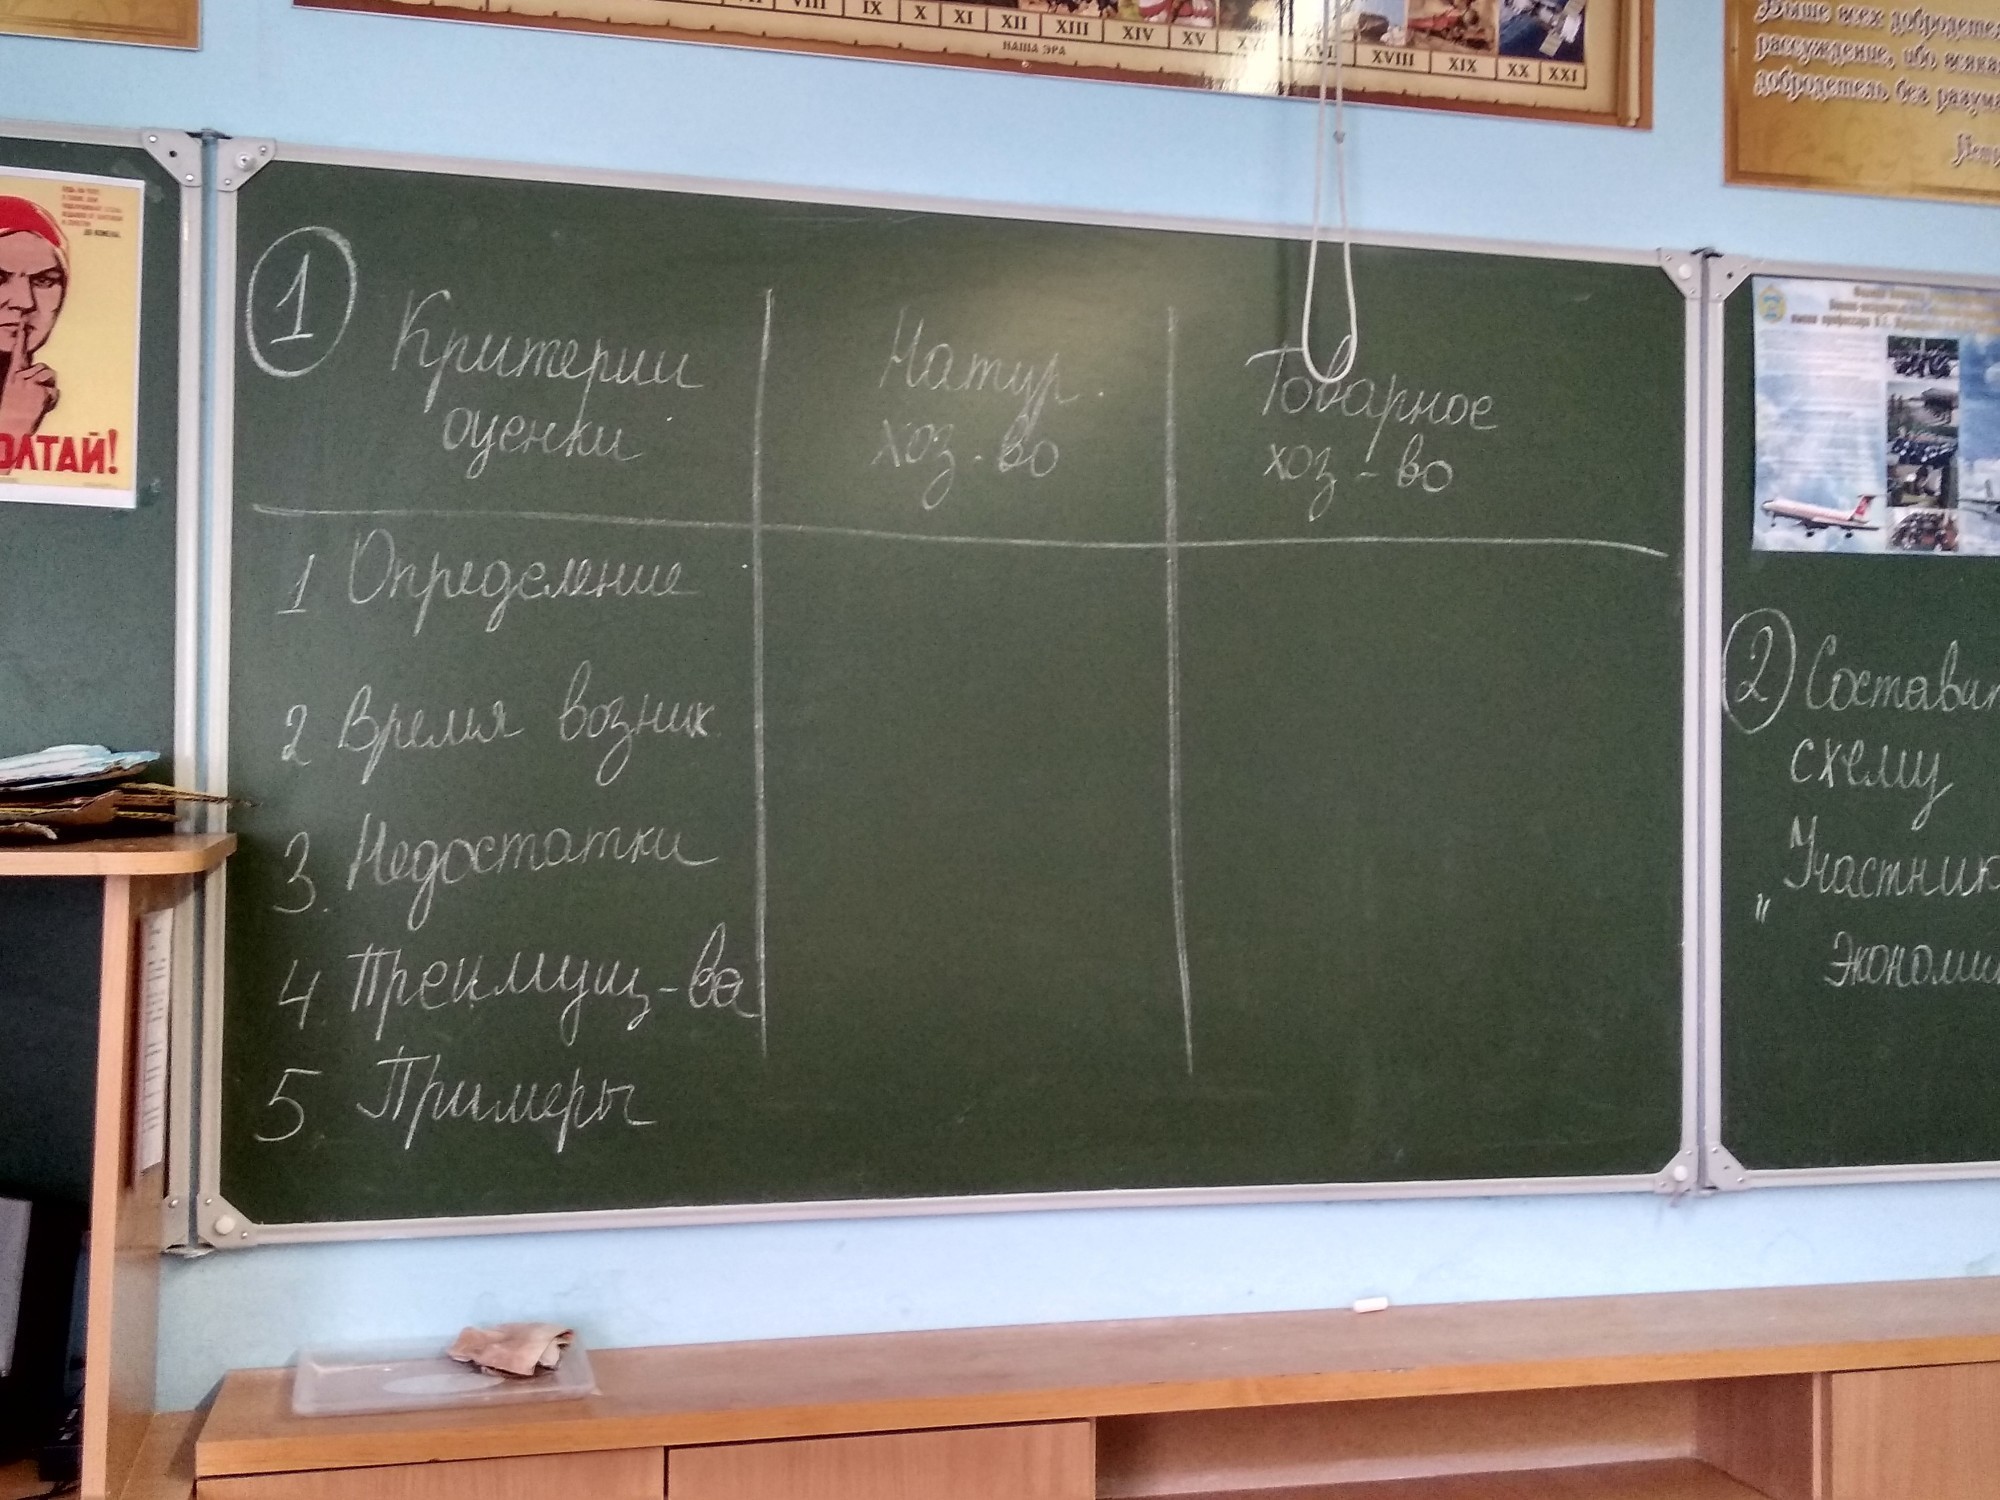 VIII IX X XI XII XIII XIV XV XVIII XIX XX XXI
НАША ЭРА
Выше всех
рассуждение, ибо
добродетель без
ОЛТАЙ!
1
Критерии
оценки
Натур.
хоз-во
Товарное
хоз-во
1 Определение
2 Время возник.
3. Недостатки
4. Преимущ-ва
5 Примеры
2 Состави
схему
"Участник
Экономи